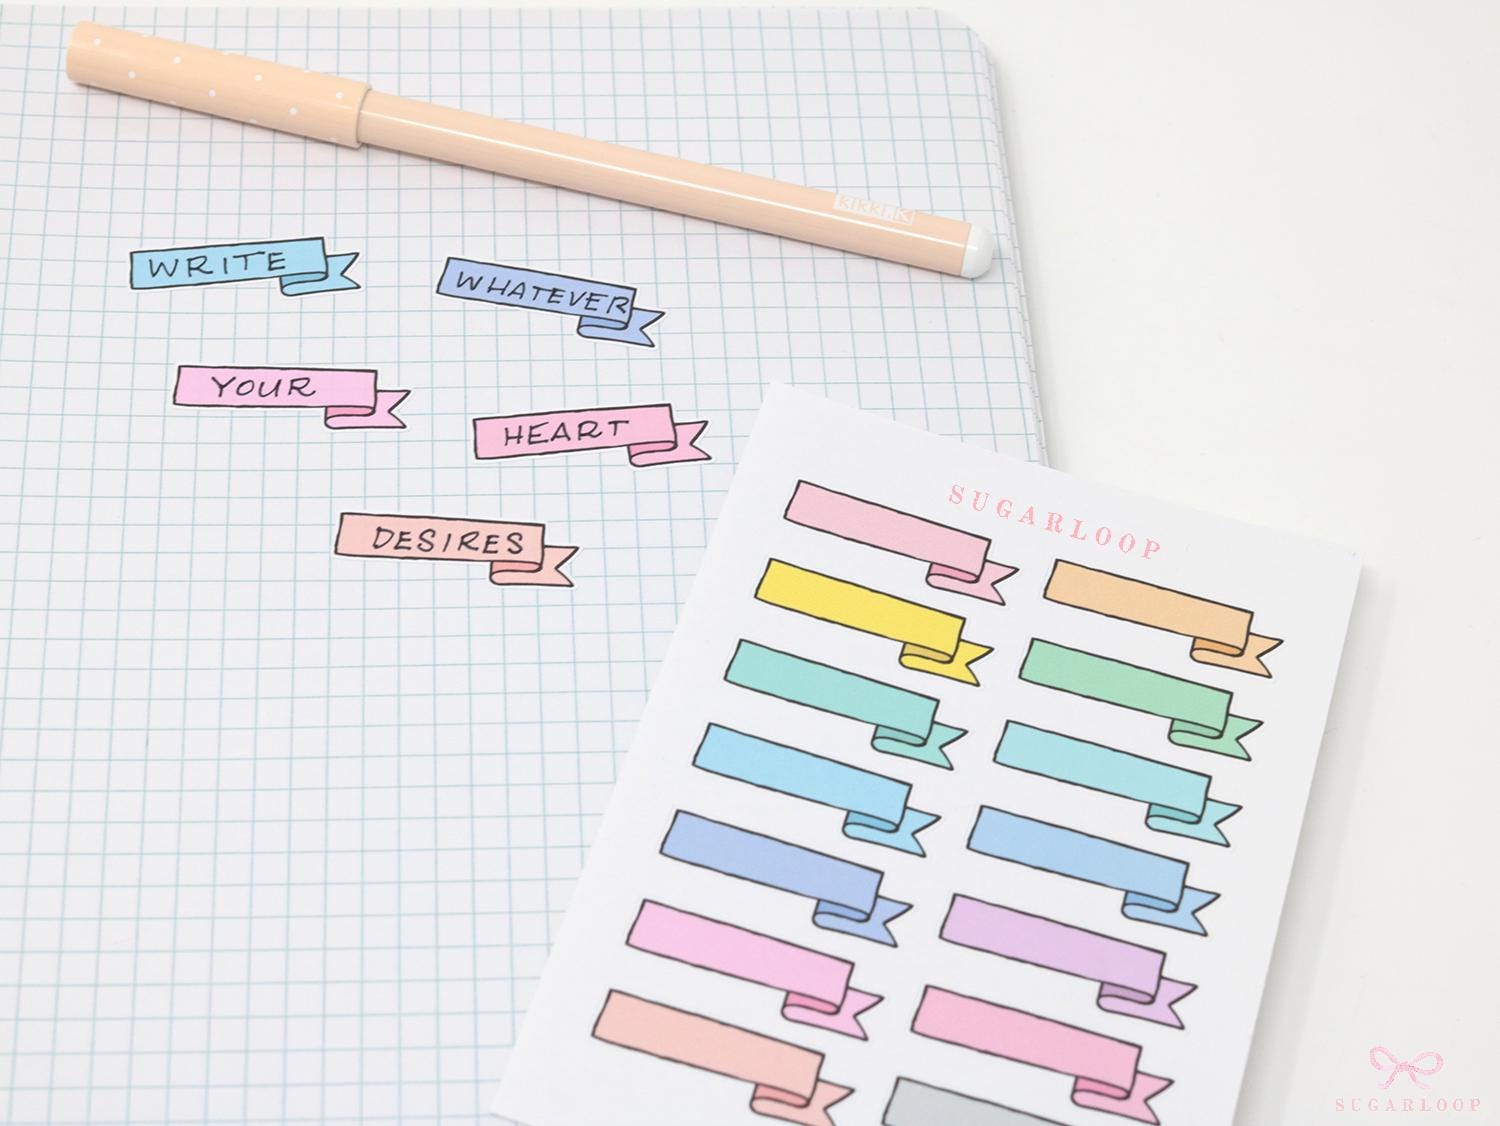 kikki.K
WRITE
WHATEVER
YOUR
HEART
DESIRES
SUGARLOOP
SUGARLOOP